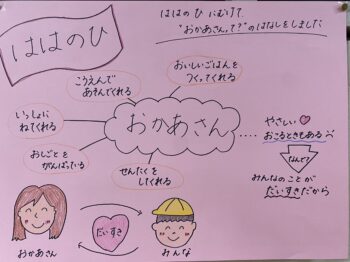 ははのひ
ははの ひ にむけて
"おかあさんって?"のはなしをしました
こうえんで
あそんでくれる
おいしいごはんを
つくってくれる
いっしょに
ねてくれる
おかあさん
やさしい
おこるときもある
おしごとを
がんばっている
せんたくを
してくれる
なんで?
みんなのことが
だいすきだから
だいすき
おかあさん
みんな